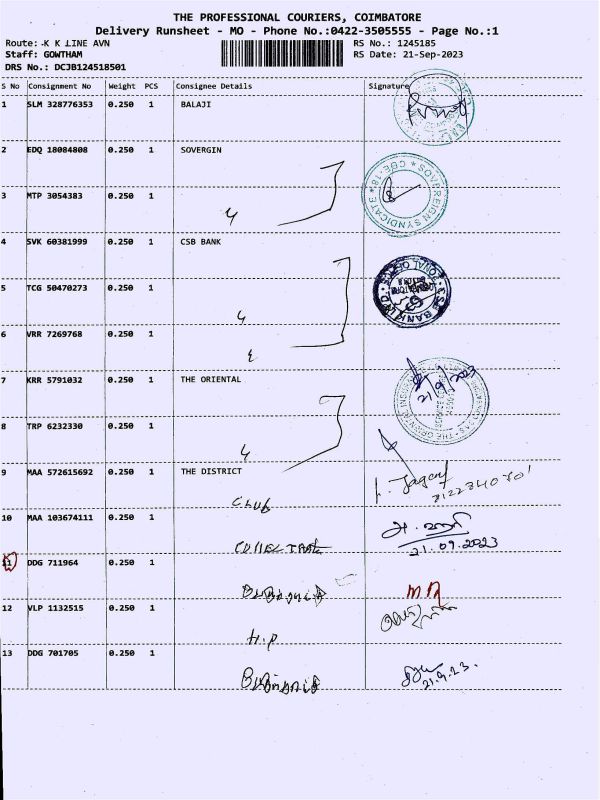 THE PROFESSIONAL COURIERS, COIMBATORE
Delivery Runsheet - MO - Phone No.:0422-3505555 - Page No.:1
Route: K K LINE AVN RS No.: 1245185
Staff: GOWTHAM RS Date: 21-Sep-2023
DRS No.: DCJB124518501
S No Consignment No Weight PCS Consignee Details Signature
1 SLM 328776353 0.250 1 BALAJI
2 EDQ 18084808 0.250 1 SOVERGIN
SOVEREIGN SYNDICATE ★ CBE-18 ★
3 MTP 3054383 0.250 1
4 SVK 60381999 0.250 1 CSB BANK
CSB BANK LTD
5 TCG 50470273 0.250 1
6 VRR 7269768 0.250 1
7 KRR 5791032 0.250 1 THE ORIENTAL
21/9/2023
8 TRP 6232330 0.250 1
9 MAA 572615692 0.250 1 THE DISTRICT
CLUB
10 MAA 103674111 0.250 1
21.09.2023
11 DDG 711964 0.250 1
12 VLP 1132515 0.250 1
H.P
13 DDG 701705 0.250 1
21.9.23.